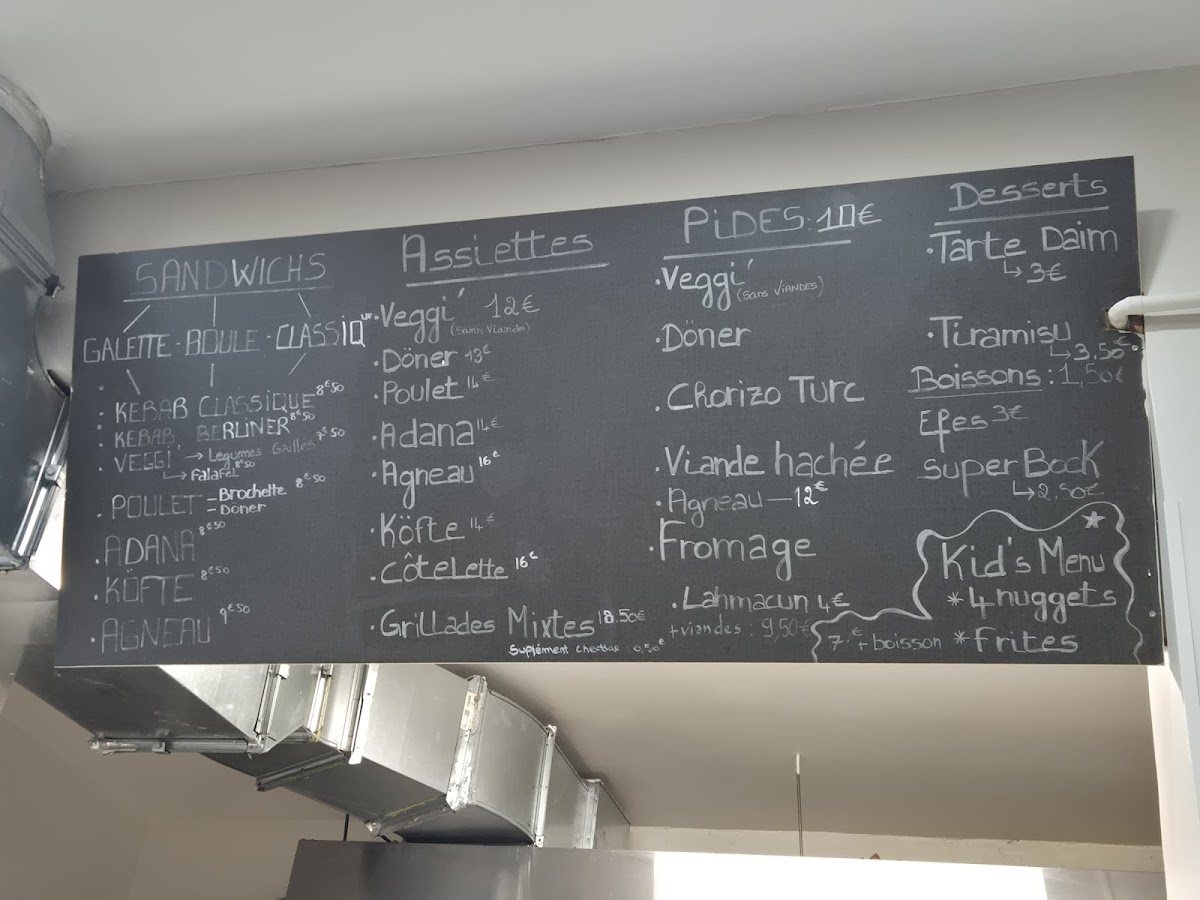 SANDWICHS
GALETTE · BOULE · CLASSIQUE
· KEBAB CLASSIQUE 8€50
· KEBAB BERLINER 8€50
· VEGGI' → Legumes Grillés 7€50
↳ Falafel 8€50
· POULET - Brochette 8€50
- Döner
· ADANA 8€50
· KÖFTE 8€50
· AGNEAU 9€50
Assiettes
· Veggi' 12€
(sans viande)
· Döner 13€
· Poulet 14€
· Adana 14€
· Agneau 16€
· Köfte 14€
· Côtelette 16€
· Grillades Mixtes 18.50€
Suplément Cheddar 0,50€
PIDES : 10€
· Veggi'
(sans viandes)
Döner
· Chorizo Turc
· Viande hachée
· Agneau — 12€
· Fromage
· Lahmacun 4€
+ viandes : 9,50€
Desserts
· Tarte Daim
↳ 3€
· Tiramisu
↳ 3,50€
Boissons : 1,50€
Efes 3€
Super Bock
↳ 2,50€
Kid's Menu
* 4 nuggets
7.€ + boisson * frites